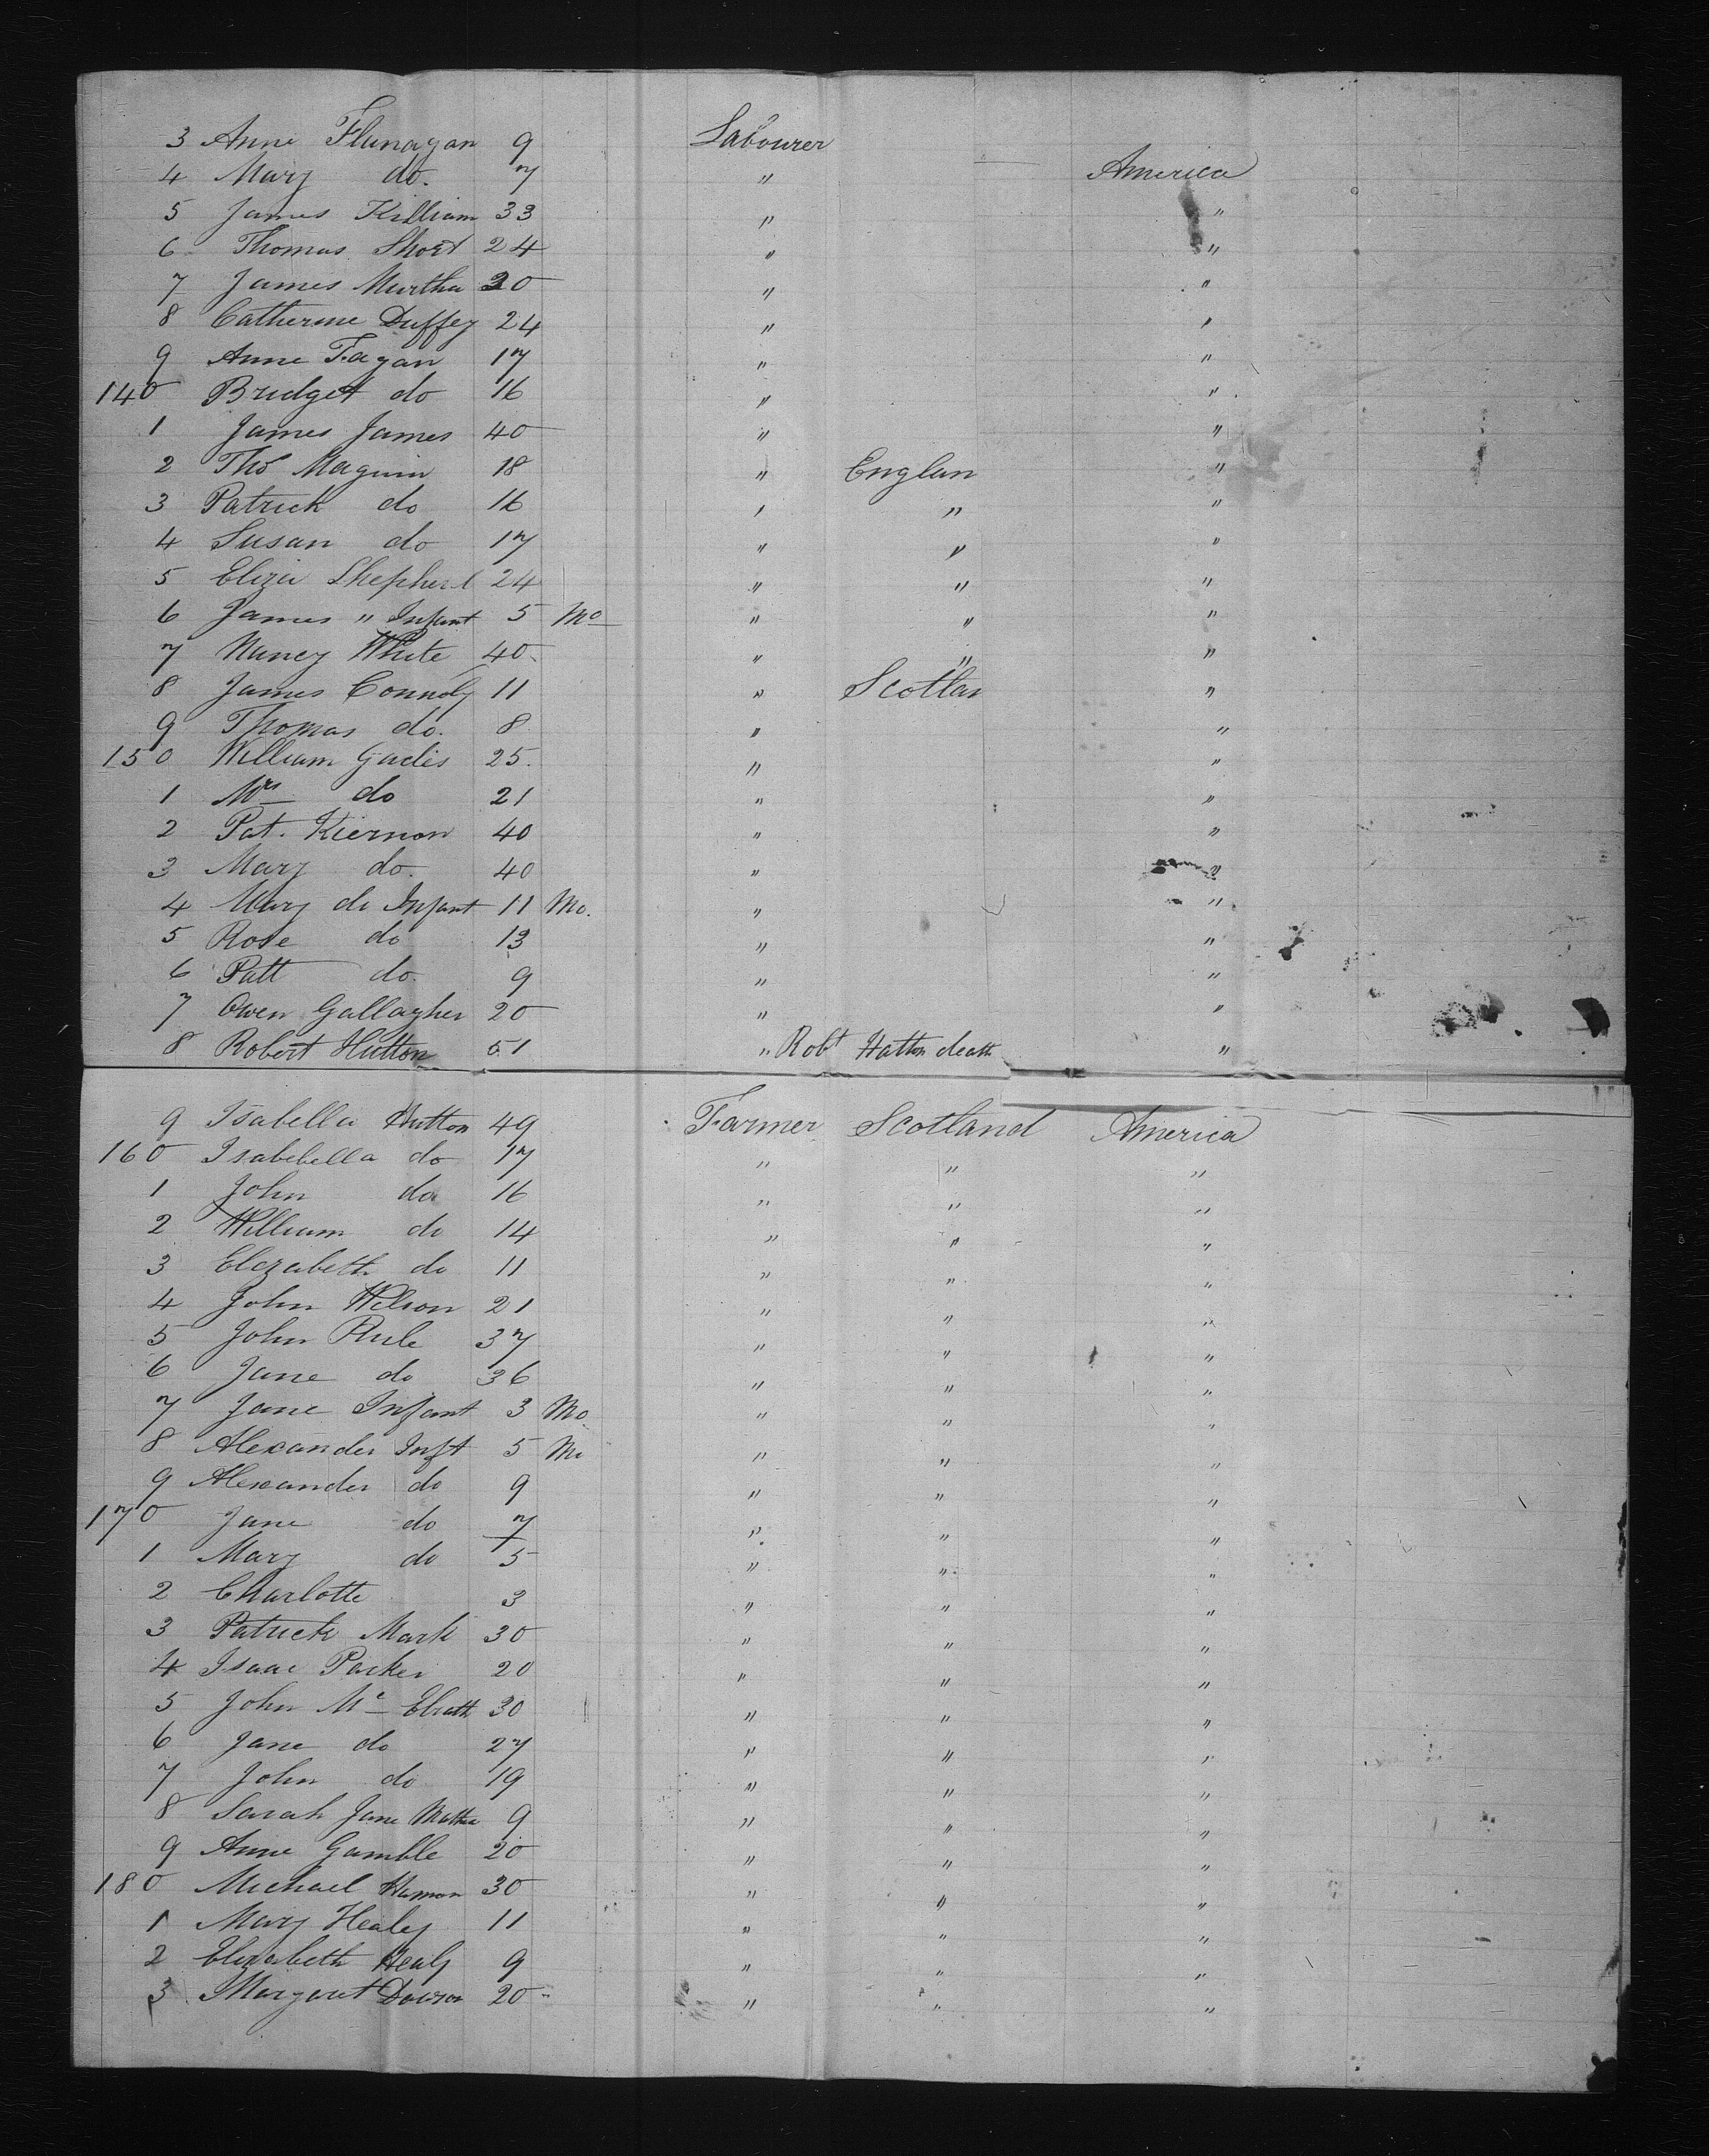 3 Anne Flunagan 9 Labourer
4 Mary do. 7 " America
5 James Killiam 33 " "
6 Thomas Short 24 " "
7 James Murtha 30 " "
8 Catherine Duffey 24 " "
9 Anne Fagan 17 " "
140 Bridget do 16 " "
1 James James 40 " "
2 Tho Maguin 18 " Englan "
3 Patrick do 16 " " "
4 Susan do 17 " " "
5 Eliza Shepherd 24 " " "
6 James " Infant 5 Mo " " "
7 Nancy White 40 " " "
8 James Connoly 11 " Scotlan "
9 Thomas do. 8 " "
150 William Gadis 25. " "
1 Mrs do 21 " "
2 Pat. Kiernon 40 " "
3 Mary do. 40 " "
4 Mary do Infant 11 Mo. " "
5 Rose do 13 " "
6 Patt do. 9 " "
7 Owen Gallagher 20 " "
8 Robert Hutton 51 " Robt Hatton death "
9 Isabella Hutton 49 Farmer Scotland America
160 Isabebella do 17 " " "
1 John do 16 " " "
2 William do 14 " " "
3 Elezabeth do 11 " " "
4 John Wilson 21 " " "
5 John Rule 37 " " "
6 Jane do 36 " " "
7 Jane Infant 3 Mo " " "
8 Alexander Inft 5 Mo " " "
9 Alexander do 9 " " "
170 Jane do 7 " " "
1 Mary do 5 " " "
2 Charlotte 3 " " "
3 Patrick Mark 30 " " "
4 Isaac Parker 20 " " "
5 John Mc Elrath 30 " " "
6 Jane do 27 " " "
7 John do 19 " " "
8 Sarah Jane 9 " " "
9 Anne Gamble 20 " " "
180 Michael Hamon 30 " " "
1 Mary Healey 11 " " "
2 Elizabeth Healy 9 " " "
3 Margaret Dawson 20 " " "